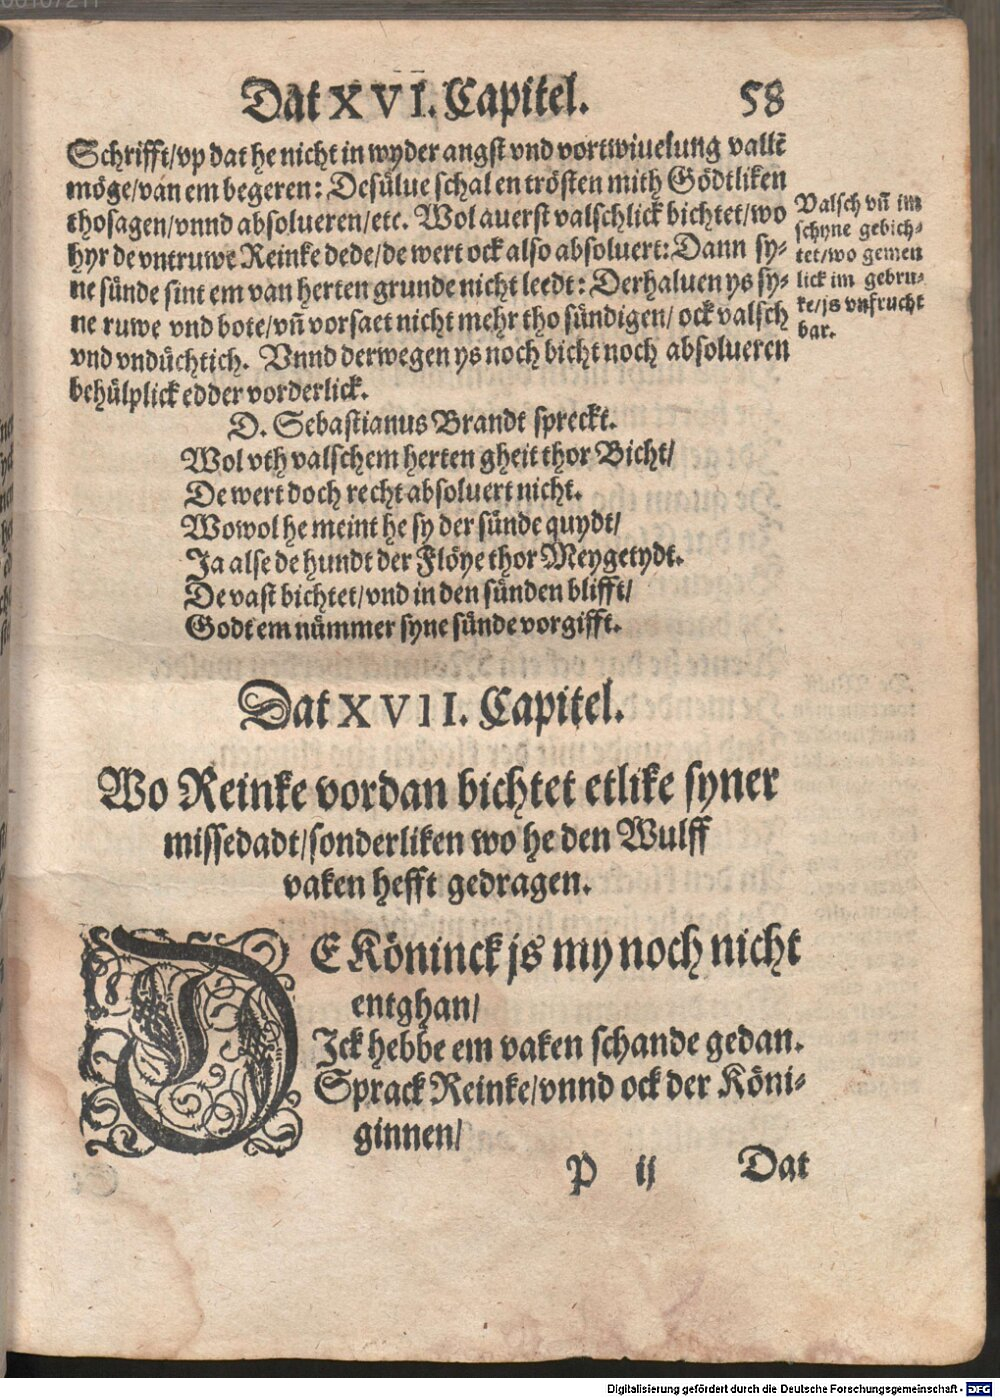 Dat XVI. Capitel. 58
Schrifft/vp dat he nicht in wyder angst vnd vortwiuelung vallē
möge/van em begeren: Desülue schal en trösten mith Gödtliken
thosagen/vnnd absolueren/etc. Wol auerst valschlick bichtet/wo
hyr de vntruwe Reinke dede/de wert ock also absoluert: Dann sy-
ne sünde sint em van herten grunde nicht leedt: Derhaluen ys sy-
ne ruwe vnd bote/vñ vorsaet nicht mehr tho sündigen/ ock valsch
vnd vndüchtich. Vnnd derwegen ys noch bicht noch absolueren
behülplick edder vorderlick.
Valsch vñ im
schyne gebich-
tet/wo gemen
lick im gebru-
ke/js vnfrucht
bar.
D. Sebastianus Brandt spreckt.
Wol vth valschem herten gheit thor Bicht/
De wert doch recht absoluert nicht.
Wowol he meint he sy der sünde quydt/
Ja alse de hundt der Flöye thor Meygetydt.
De vast bichtet/vnd in den sünden blifft/
Godt em nümmer syne sünde vorgifft.
Dat XVII. Capitel.
Wo Reinke vordan bichtet etlike syner
missedadt/sonderliken wo he den Wulff
vaken hefft gedragen.
DE Köninck js my noch nicht
entghan/
Jck hebbe em vaken schande gedan.
Sprack Reinke/vnnd ock der Köni-
ginnen/
P ij Dat
Digitalisierung gefördert durch die Deutsche Forschungsgemeinschaft - DFG